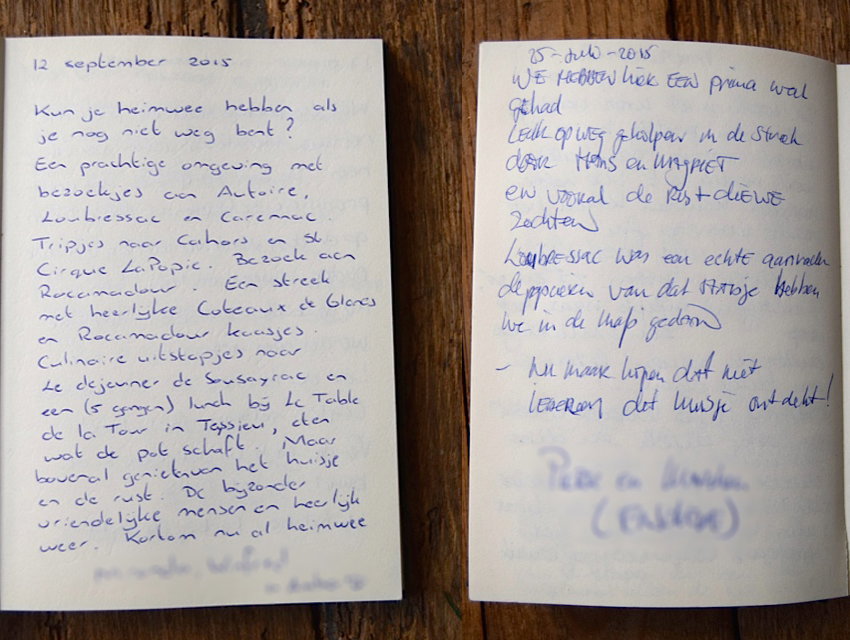 12 september 2015
Kun je heimwee hebben als
je nog niet weg bent?
Een prachtige omgeving met
bezoekjes aan Autoire,
Loubressac en Carennac.
Tripjes naar Cahors en St.
Cirque LaPopie. Bezoek aan
Rocamadour. Een streek
met heerlijke Coteaux de Glanes
en Rocamadour kaasjes.
Culinaire uitstapjes naar
Le dejeuner de Sousayrac en
een (5 gangen) lunch bij La Table
de la Tour in Teyssieu, eten
wat de pot schaft. Maar
bovenal genieten van het huisje
en de rust. De bijzonder
vriendelijke mensen en heerlijk
weer. Kortom nu al heimwee
25-Juli-2015
WE HEBBEN hier EEN prima
gehad
op weg geholpen in de streek
DOOR HANS en MAGRIET
EN VOORAL de RUST DIE WE
Zochten
LOUBRESSAC was een echte aanrader
van dat
hebben
We in de gedaan
- Nu maar hopen dat niet
IEDEREEN dit huisje ontdekt!